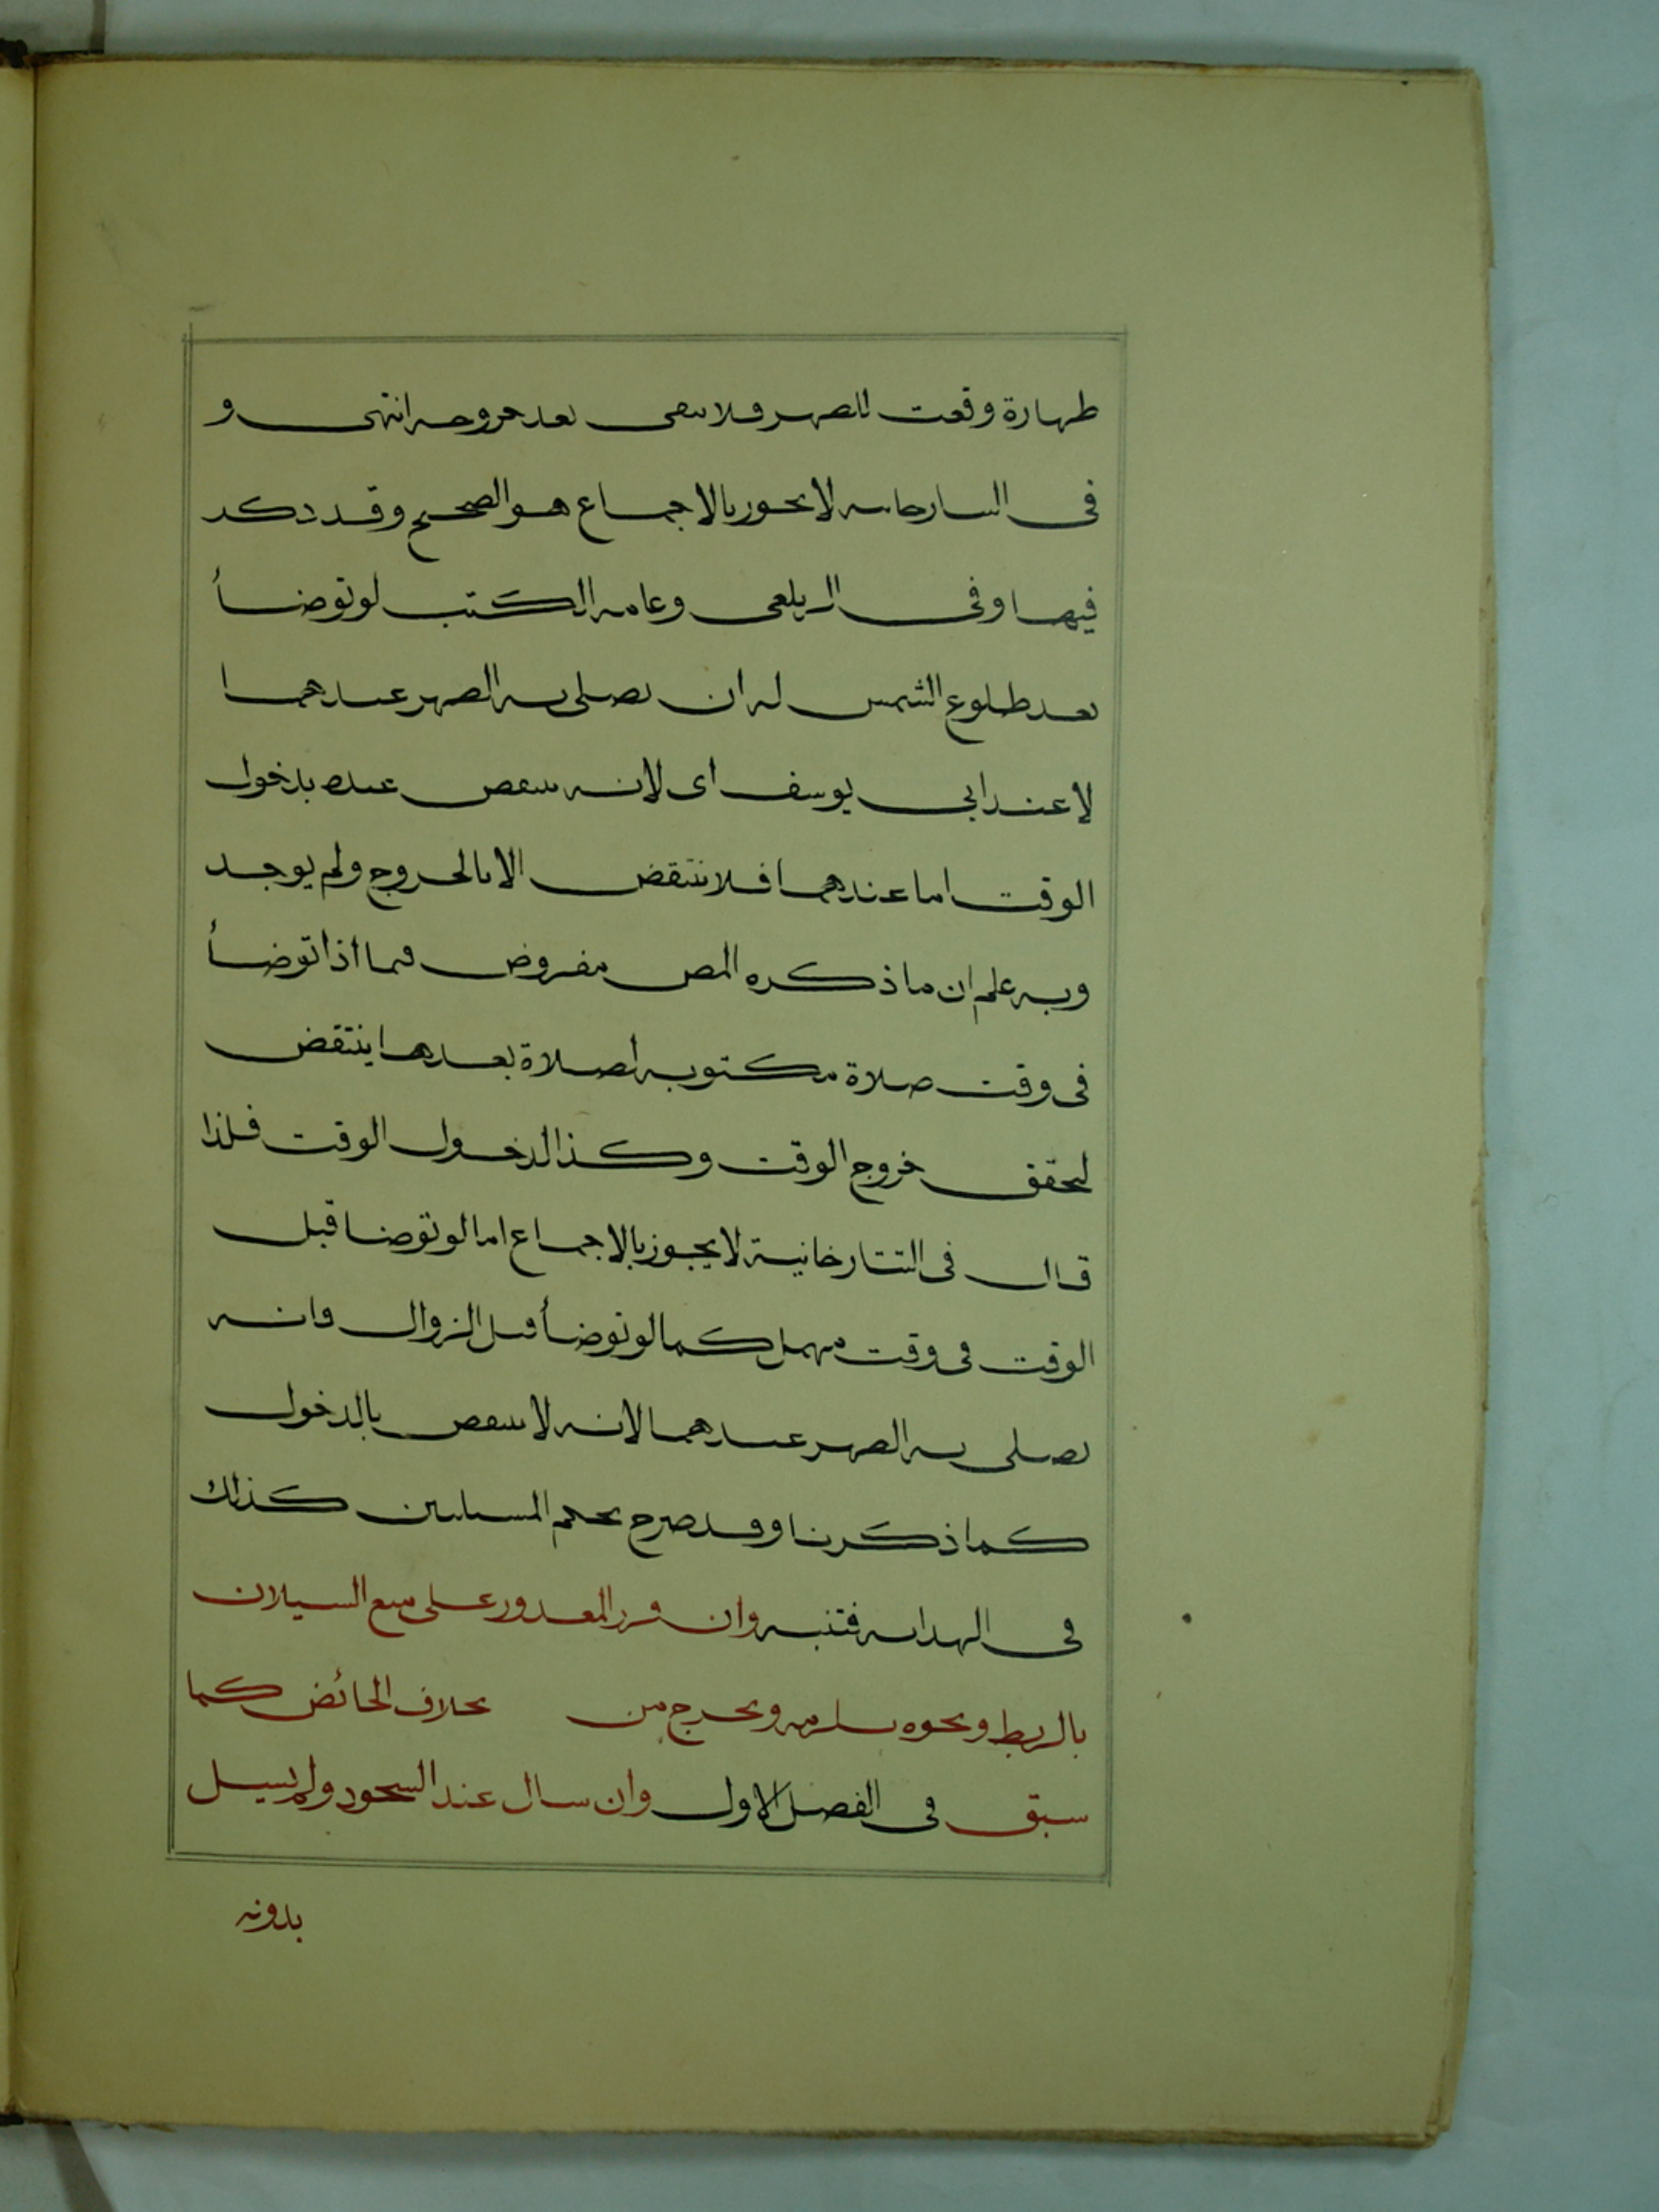 طهارة وقعت للصهر فلا تبقى بعد خروجه انتهى و
فى التتارخانيه لا يجوز بالاجماع هو الصحيح وقد ذكر
فيها وفى الزيلعى وعامه الكتب لو توضأ
بعد طلوع الشمس له ان يصلى به الظهر عندهما
لا عند ابى يوسف اى لانه ينتقض عنده بدخول
الوقت اما عندهما فلا ينتقض الا بالخروج ولم يوجد
وبه علم ان ما ذكره المص مفروض فيما اذا توضأ
فى وقت صلاة مكتوبه لصلاة بعدها ينتقض
لتحقق خروج الوقت وكذا لدخول الوقت فلذا
قال فى التتارخانية لا يجوز بالاجماع اما لو توضا قبل
الوقت فى وقت مهمل كما لو توضأ قبل الزوال فانه
يصلى به الظهر عندهما لانه لا ينتقض بالدخول
كما ذكرنا وقد صرح بحكم المسئلتين كذلك
فى الهدايه فتنبه وان قدر المعذور على منع السيلان
بالربط ونحوه يلزمه ويخرج من بخلاف الحائض كما
سبق فى الفصل الاول وان سال عند السجود ولم يسيل
بدونه